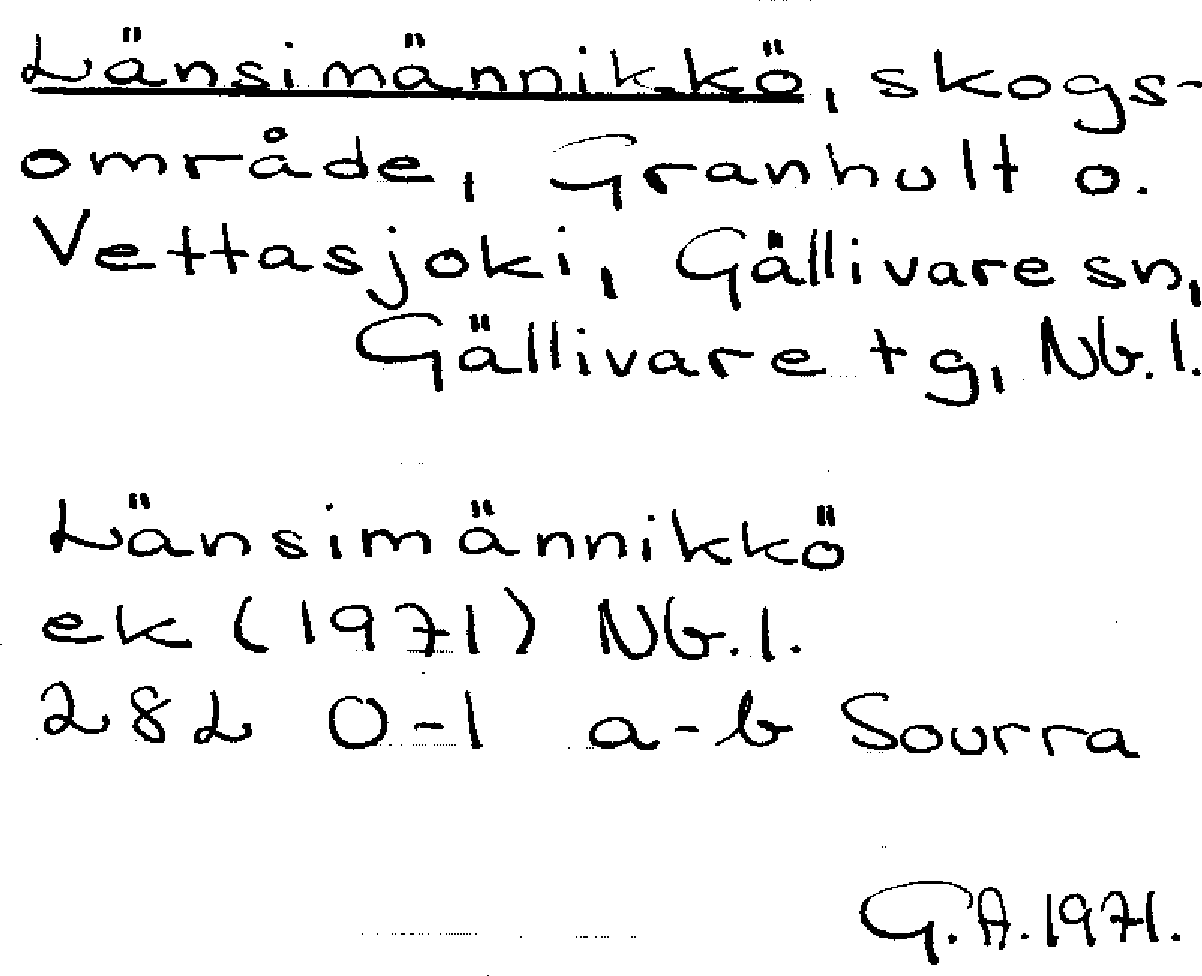 Länsimännikkö, skogs-
område, Granhult o.
Vettasjoki, Gällivare sn,
Gällivare tg, Nb.l.
Länsimännikkö
ek (1971) Nb.l.
28L 0-1 a-b Sourra
G.A.1971.